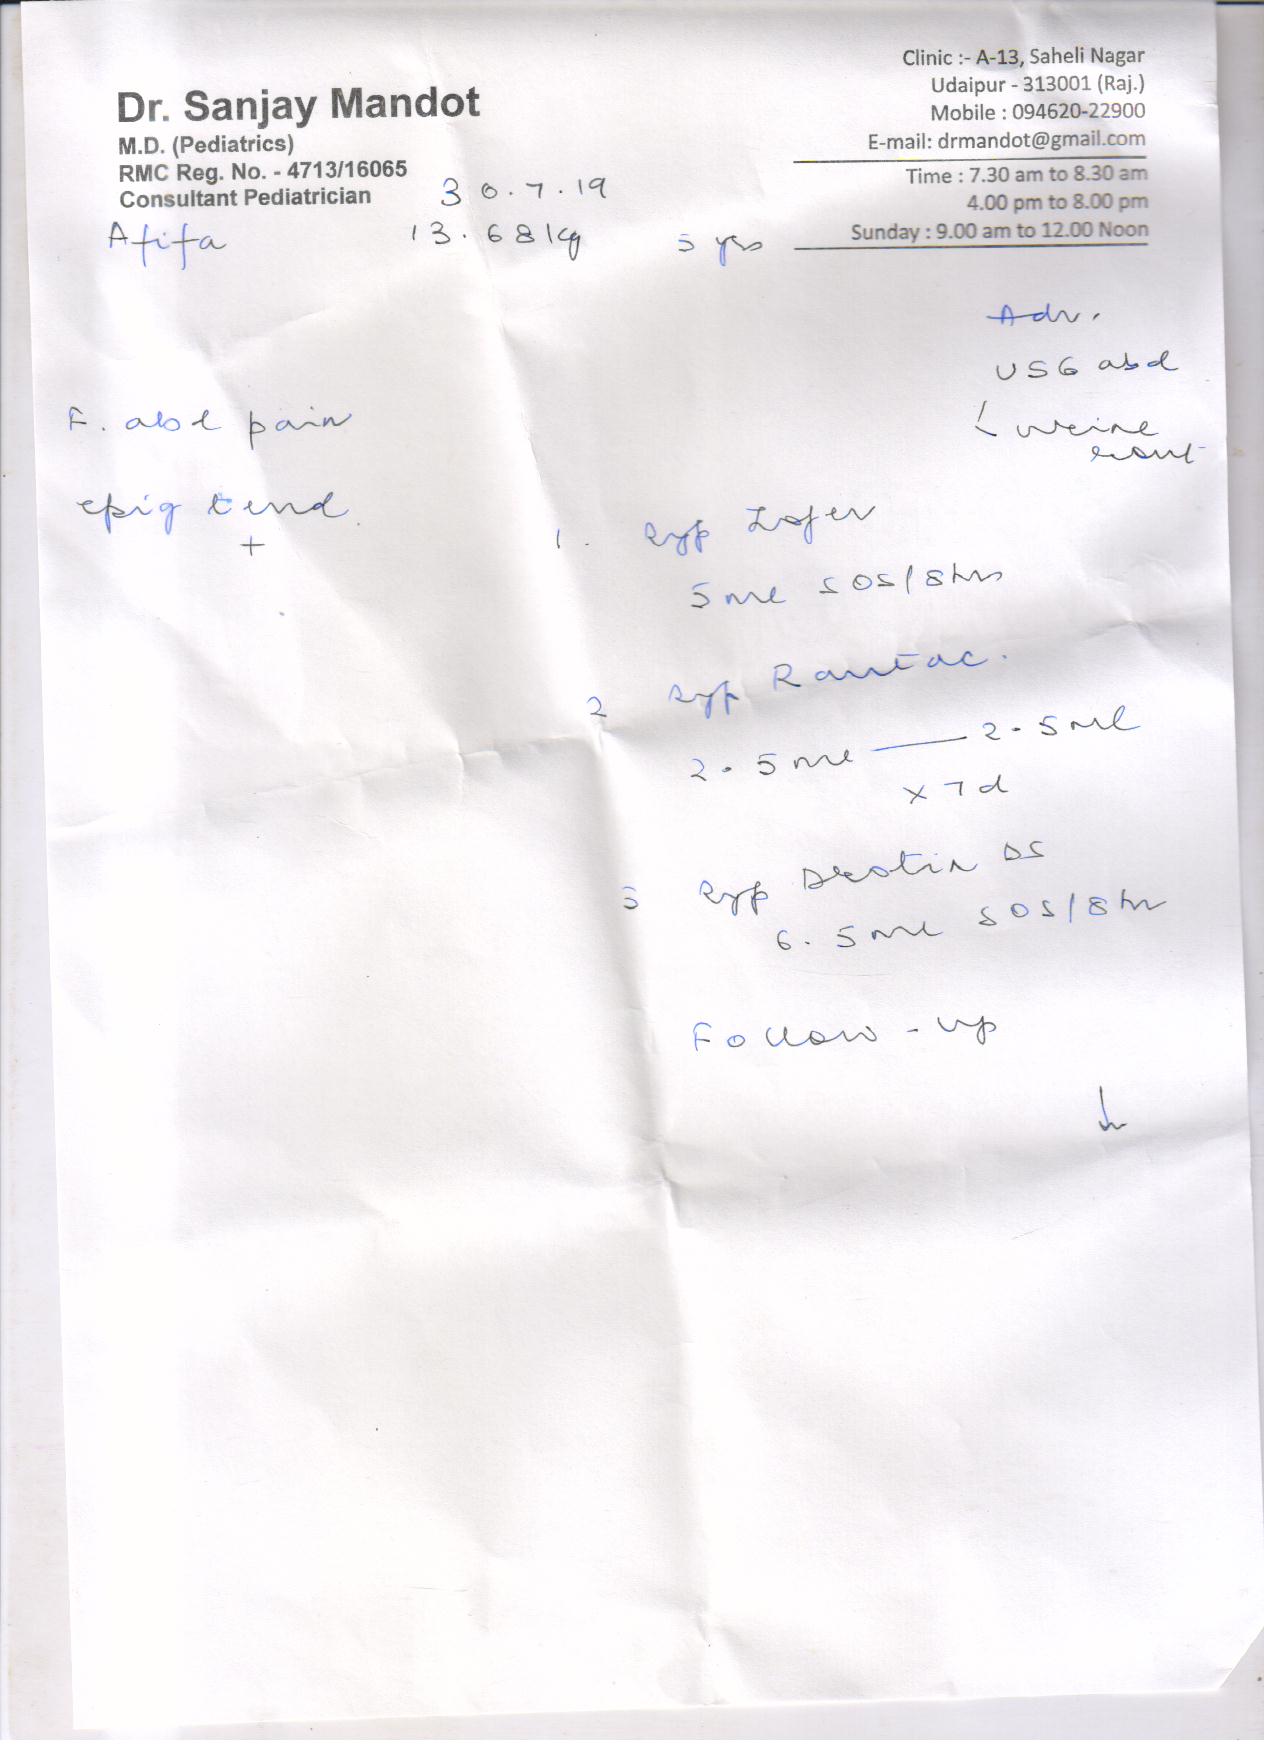 Dr. Sanjay Mandot
M.D. (Pediatrics)
RMC Reg. No. - 4713/16065
Consultant Pediatrician
Clinic :- A-13, Saheli Nagar
Udaipur - 313001 (Raj.)
Mobile : 094620-22900
E-mail: drmandot@gmail.com
Time : 7.30 am to 8.30 am
4.00 pm to 8.00 pm
Sunday : 9.00 am to 12.00 Noon
30.7.19
Afifa 13.68 kg 5 yrs
Adv.
USG abd
urine
F. abd pain
epig tend
+
1. Syp
5 ml SOS/8 hrs
2 Syp Rantac.
2.5 ml — 2.5 ml
x 7d
3 Syp DS
6.5 ml SOS/8 hr
Follow-up